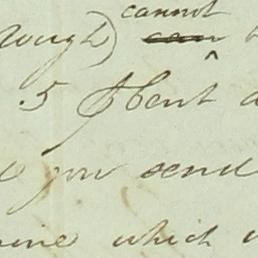 cannot
rough) can
.5 ⅌Cent
you send
which